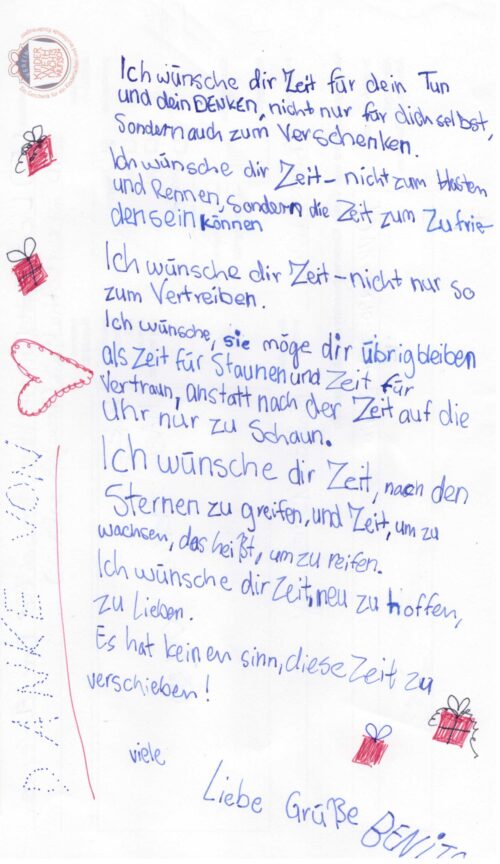 Ich wünsche dir Zeit für dein Tun
und dein DENKEN, nicht nur für dich selbst,
Sondern auch zum Verschenken.
Ich wünsche dir Zeit – nicht zum Hasten
und Rennen, sondern die Zeit zum Zufrie-
densein können
Ich wünsche dir Zeit – nicht nur so
zum Vertreiben.
Ich wünsche, sie möge dir übrigbleiben
als Zeit für Staunen und Zeit für
Vertraun, anstatt nach der Zeit auf die
Uhr nur zu Schaun.
Ich wünsche dir Zeit, nach den
Sternen zu greifen, und Zeit, um zu
wachsen, das heißt, um zu reifen.
Ich wünsche dir Zeit, neu zu hoffen,
zu Lieben.
Es hat keinen sinn, diese Zeit zu
verschieben!
viele
Liebe Grüße BENITO
DANKE VON
KINDER
WEIH
NACHTS
WUNSCH